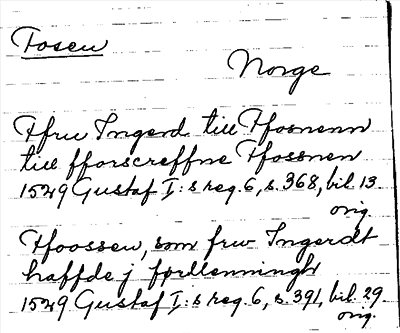 Fosen
Norge
Ffru Ingerd till Ffosnenn
till fforscreffne Ffossnen
1529 Gustaf I:s reg. 6, s. 368, bil. 13.
orig.
Ffoossen, som frw Ingerdt
haffde j forllenningh
1529 Gustaf I:s reg. 6, s. 391, bil. 29.
orig.